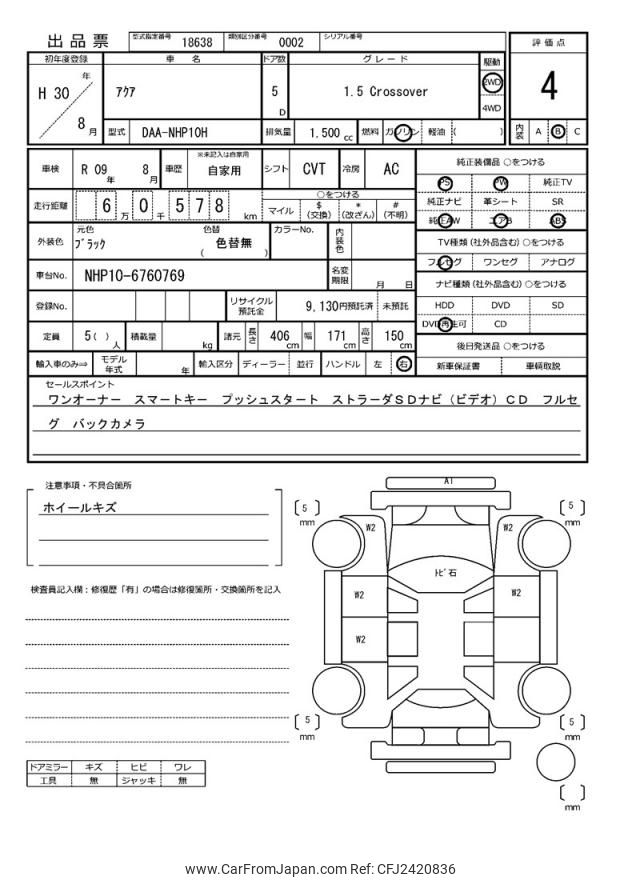 出品票 型式指定番号 18638 類別区分番号 0002 シリアル番号
評価点
初年度登録 車名 ドア数 グレード 駆動
H 30 年 アクア 5 1.5 Crossover 2WD 4
8 月 D 4WD
型式 DAA-NHP10H 排気量 1.500 cc 燃料 ガソリン 軽油 ( ) 内装 A B C
車検 R 09 年 8 月 車歴 ※未記入は自家用 自家用 シフト CVT 冷房 AC
純正装備品 ○をつける
PS PW 純正TV
走行距離 6 万 0 千 5 7 8 km ○をつける
マイル $ (交換) * (改ざん) # (不明)
純正ナビ 革シート SR
純正AW エアB ABS
外装色 元色 ブラック 色替 ( 色替無 ) カラーNo. 内装色
TV種類 (社外品含む) ○をつける
フルセグ ワンセグ アナログ
車台No. NHP10-6760769 名変期限 月 日
ナビ種類 (社外品含む) ○をつける
登録No. リサイクル預託金 9,130円預託済 未預託
HDD DVD SD
DVD再生可 CD
定員 5 ( ) 人 積載量 kg 諸元 長さ 406 cm 幅 171 cm 高さ 150 cm
後日発送品 ○をつける
輸入車のみ⇒ モデル年式 年 輸入区分 ディーラー 並行 ハンドル 左 右
新車保証書 車輌取説
セールスポイント
ワンオーナー スマートキー プッシュスタート ストラーダSDナビ(ビデオ)CD フルセ
グ バックカメラ
注意事項・不具合箇所
ホイールキズ
検査員記入欄:修復歴「有」の場合は修復箇所・交換箇所を記入
A1
5 mm
5 mm
W2 W2
トビ石
W2 W2
W2
5 mm
5 mm
mm
ドアミラー キズ ヒビ ワレ
工具 無 ジャッキ 無
www.CarFromJapan.com Ref: CFJ2420836